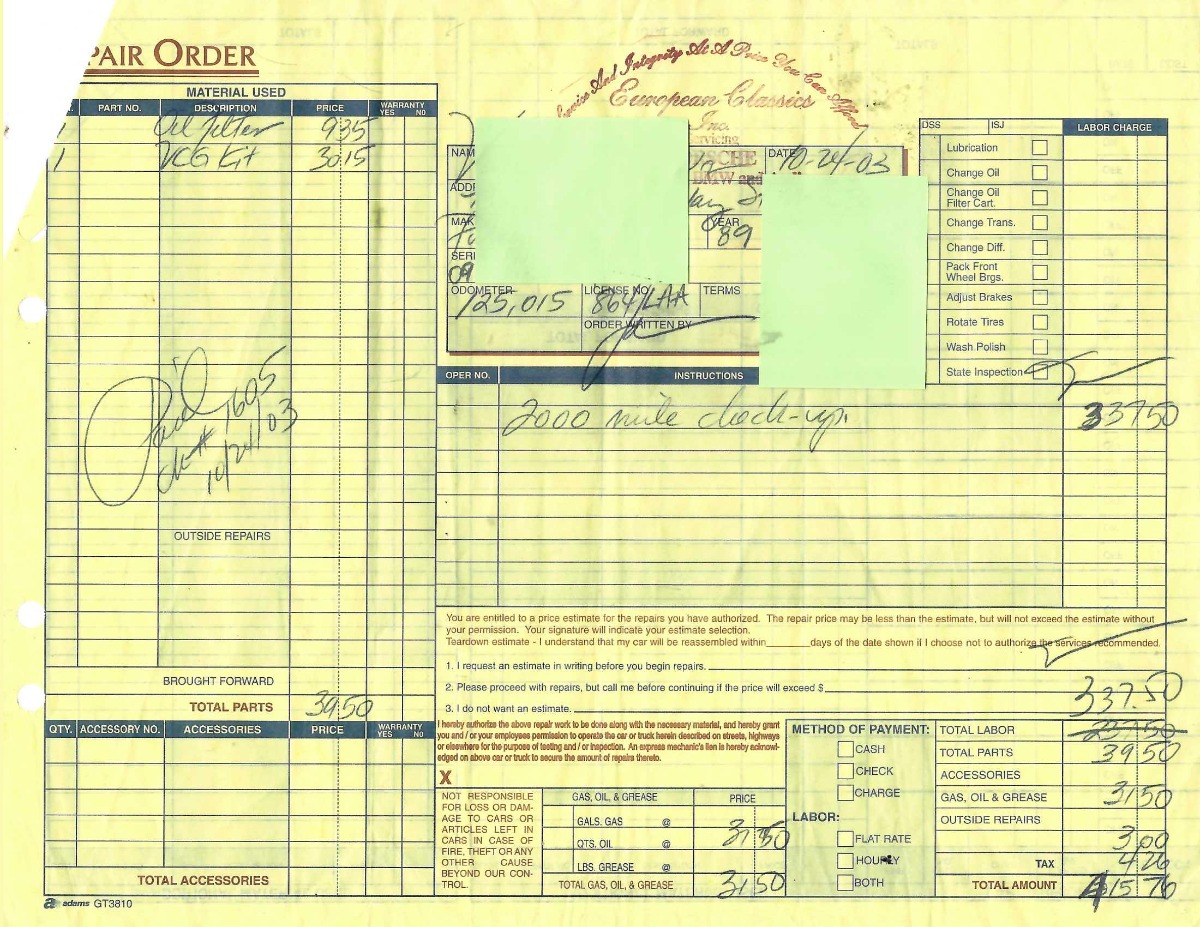 PAIR ORDER
MATERIAL USED
PART NO. DESCRIPTION PRICE WARRANTY YES NO
1 Oil filter 9 35
1 VCG Kit 30 15
Paid
ck# 1605
10/24/03
OUTSIDE REPAIRS
BROUGHT FORWARD
TOTAL PARTS 39 50
QTY. ACCESSORY NO. ACCESSORIES PRICE WARRANTY YES NO
TOTAL ACCESSORIES
adams GT3810
Service And Integrity At A Price You Can Afford
European Classics
Inc.
BMW and
NAM
DATE 10-24-03
ADD
MAK
YEAR 89
SERI
09
ODOMETER 125,015 LICENSE NO. 864/LAA TERMS
ORDER WRITTEN BY
OPER NO. INSTRUCTIONS
2000 mile check-up. 337 50
DSS ISJ LABOR CHARGE
Lubrication
Change Oil
Change Oil Filter Cart.
Change Trans.
Change Diff.
Pack Front Wheel Brgs.
Adjust Brakes
Rotate Tires
Wash Polish
State Inspection
You are entitled to a price estimate for the repairs you have authorized. The repair price may be less than the estimate, but will not exceed the estimate without
your permission. Your signature will indicate your estimate selection.
Teardown estimate - I understand that my car will be reassembled within______days of the date shown if I choose not to authorize the services recommended.
1. I request an estimate in writing before you begin repairs.
2. Please proceed with repairs, but call me before continuing if the price will exceed $
3. I do not want an estimate.
337.50
I hereby authorize the above repair work to be done along with the necessary material, and hereby grant
you and / or your employees permission to operate the car or truck herein described on streets, highways
or elsewhere for the purpose of testing and / or inspection. An express mechanic's lien is hereby acknowl-
edged on above car or truck to secure the amount of repairs thereto.
X
NOT RESPONSIBLE
FOR LOSS OR DAM-
AGE TO CARS OR
ARTICLES LEFT IN
CARS IN CASE OF
FIRE, THEFT OR ANY
OTHER CAUSE
BEYOND OUR CON-
TROL.
GAS, OIL, & GREASE PRICE
GALS. GAS @
QTS. OIL @ 31 50
LBS. GREASE @
TOTAL GAS, OIL, & GREASE 31 50
METHOD OF PAYMENT:
CASH
CHECK
CHARGE
LABOR:
FLAT RATE
HOURLY
BOTH
TOTAL LABOR 237 50
TOTAL PARTS 39 50
ACCESSORIES
GAS, OIL & GREASE 31 50
OUTSIDE REPAIRS
3 00
TAX 4 26
TOTAL AMOUNT 415 76